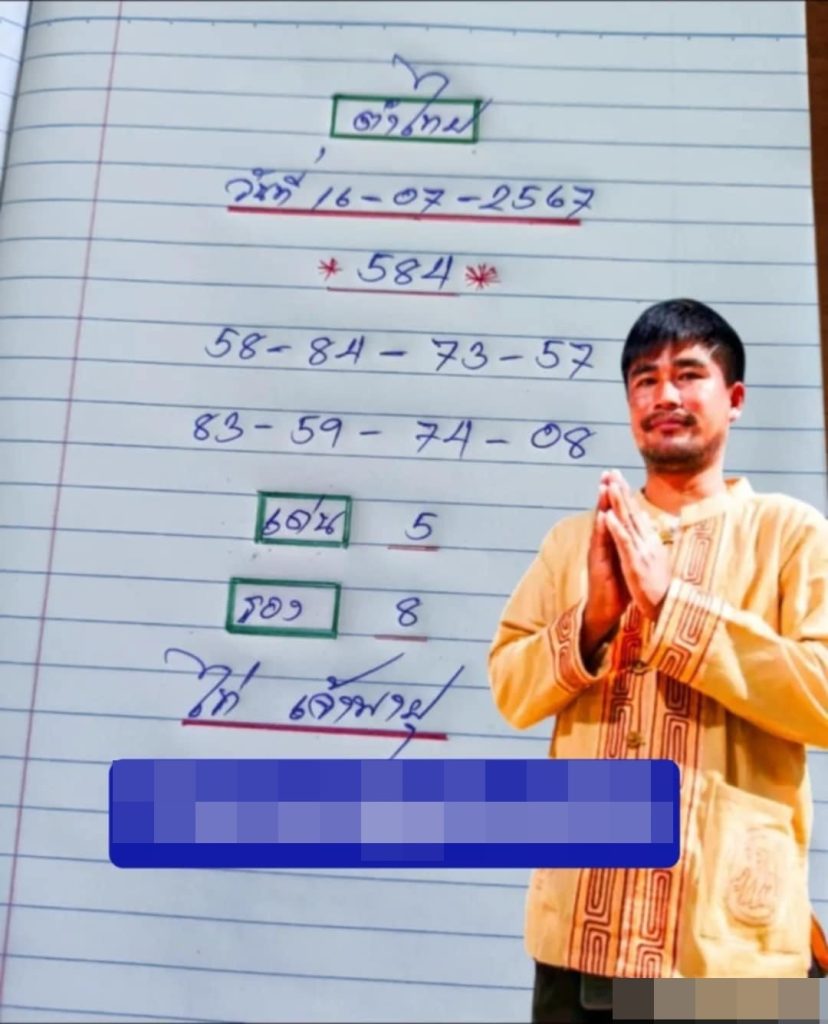 วันที่ 16-07-2567
* 584 *
58-84-73-57
83-59-74-08
เด่น 5
รอง 8
เจ้าพายุ